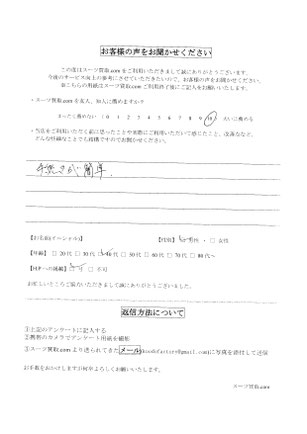 お客様の声をお聞かせください
この度はスーツ買取.comをご利用いただきまして誠にありがとうございます。
今後のサービス向上の参考にさせていただきたいので、お客様の声をお聞かせください。
※こちらの用紙はスーツ買取.comご利用終了後にご記入をお願いいたします。
・スーツ買取.comを友人、知人に薦めますか？
まったく薦めない 0 1 2 3 4 5 6 7 8 9 10 大いに薦める
・当店をご利用いただく前に思ったことや実際にご利用いただいて感じたこと、改善点など、
どんな些細なことでも結構ですのでお聞かせください。
手続きが簡単
【お名前(イニシャル)】 【性別】 □ 男性 ・ □ 女性
【年齢】 □ 20代 □ 30代 □ 40代 □ 50代 □ 60代 □ 70代 □ 80代～
【HPへの掲載】 □ 可 □ 不可
お忙しいところご協力いただきまして誠にありがとうございました。
返信方法について
①上記のアンケートに記入する
②携帯のカメラでアンケート用紙を撮影
③スーツ買取.comより送られてきたメール(goodsfactory@gmail.com)に写真を添付して送信
お手数をおかけしますが何卒よろしくお願いいたします。
スーツ買取.com